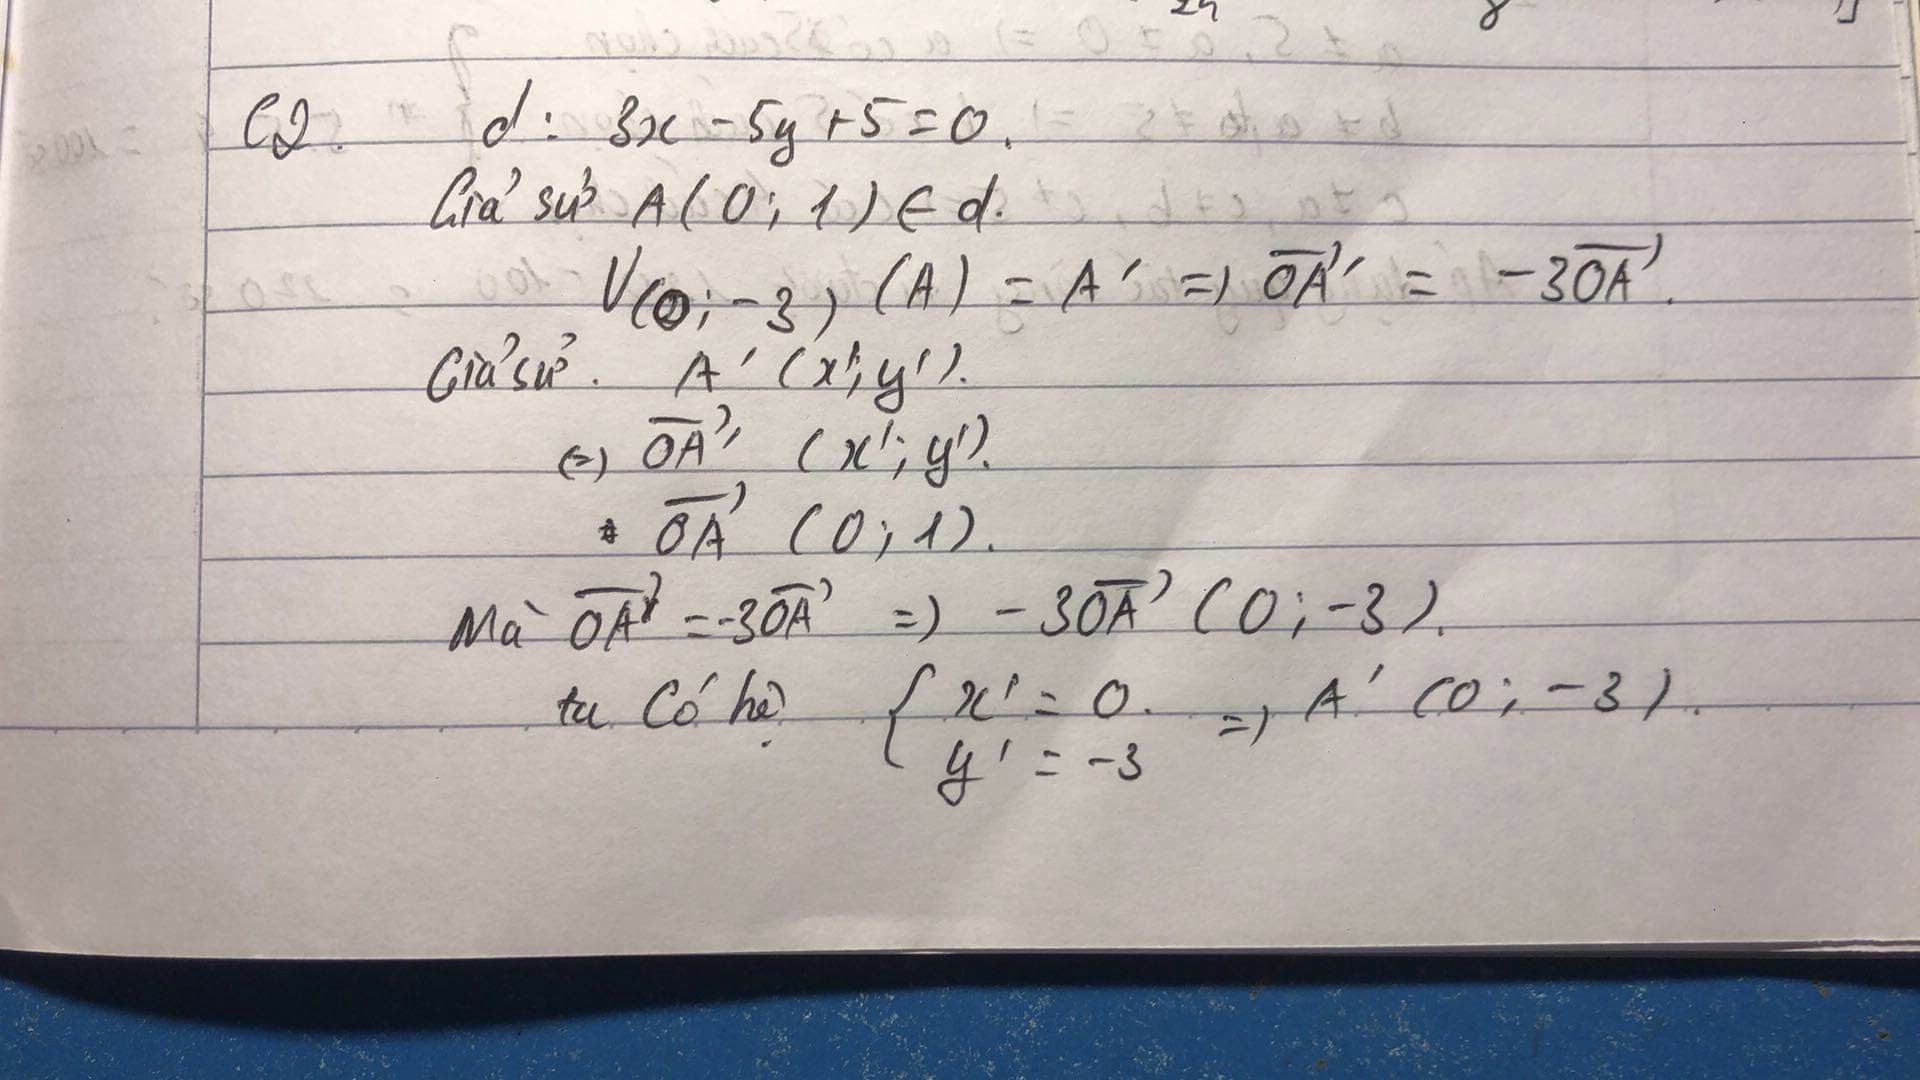 C2. d: 3x - 5y + 5 = 0.
Giả sử A(0; 1) ∈ d.
V(O; -3) (A) = A' => OA'→ = -3OA→.
Giả sử. A' (x'; y').
(=) OA'→ (x'; y').
OA→ (0; 1).
Mà OA'→ = -3OA→ => -3OA→ (0; -3).
ta có hệ { x' = 0. => A' (0; -3).
y' = -3